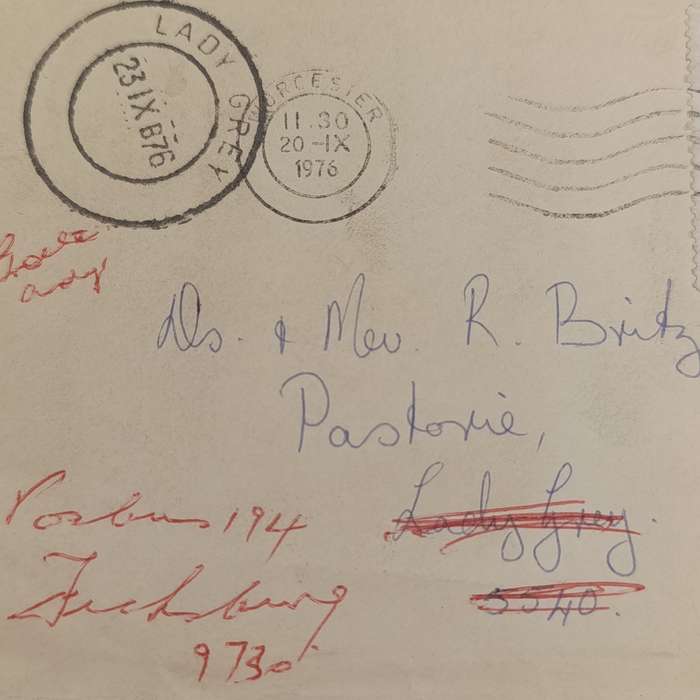 LADY GREY
23 IX B76
WORCESTER
11.30
20-IX
1976
Ds. & Mev. R. Britz
Pastorie,
Lady Grey.
5540.
Posbus 194
Ficksburg
9730